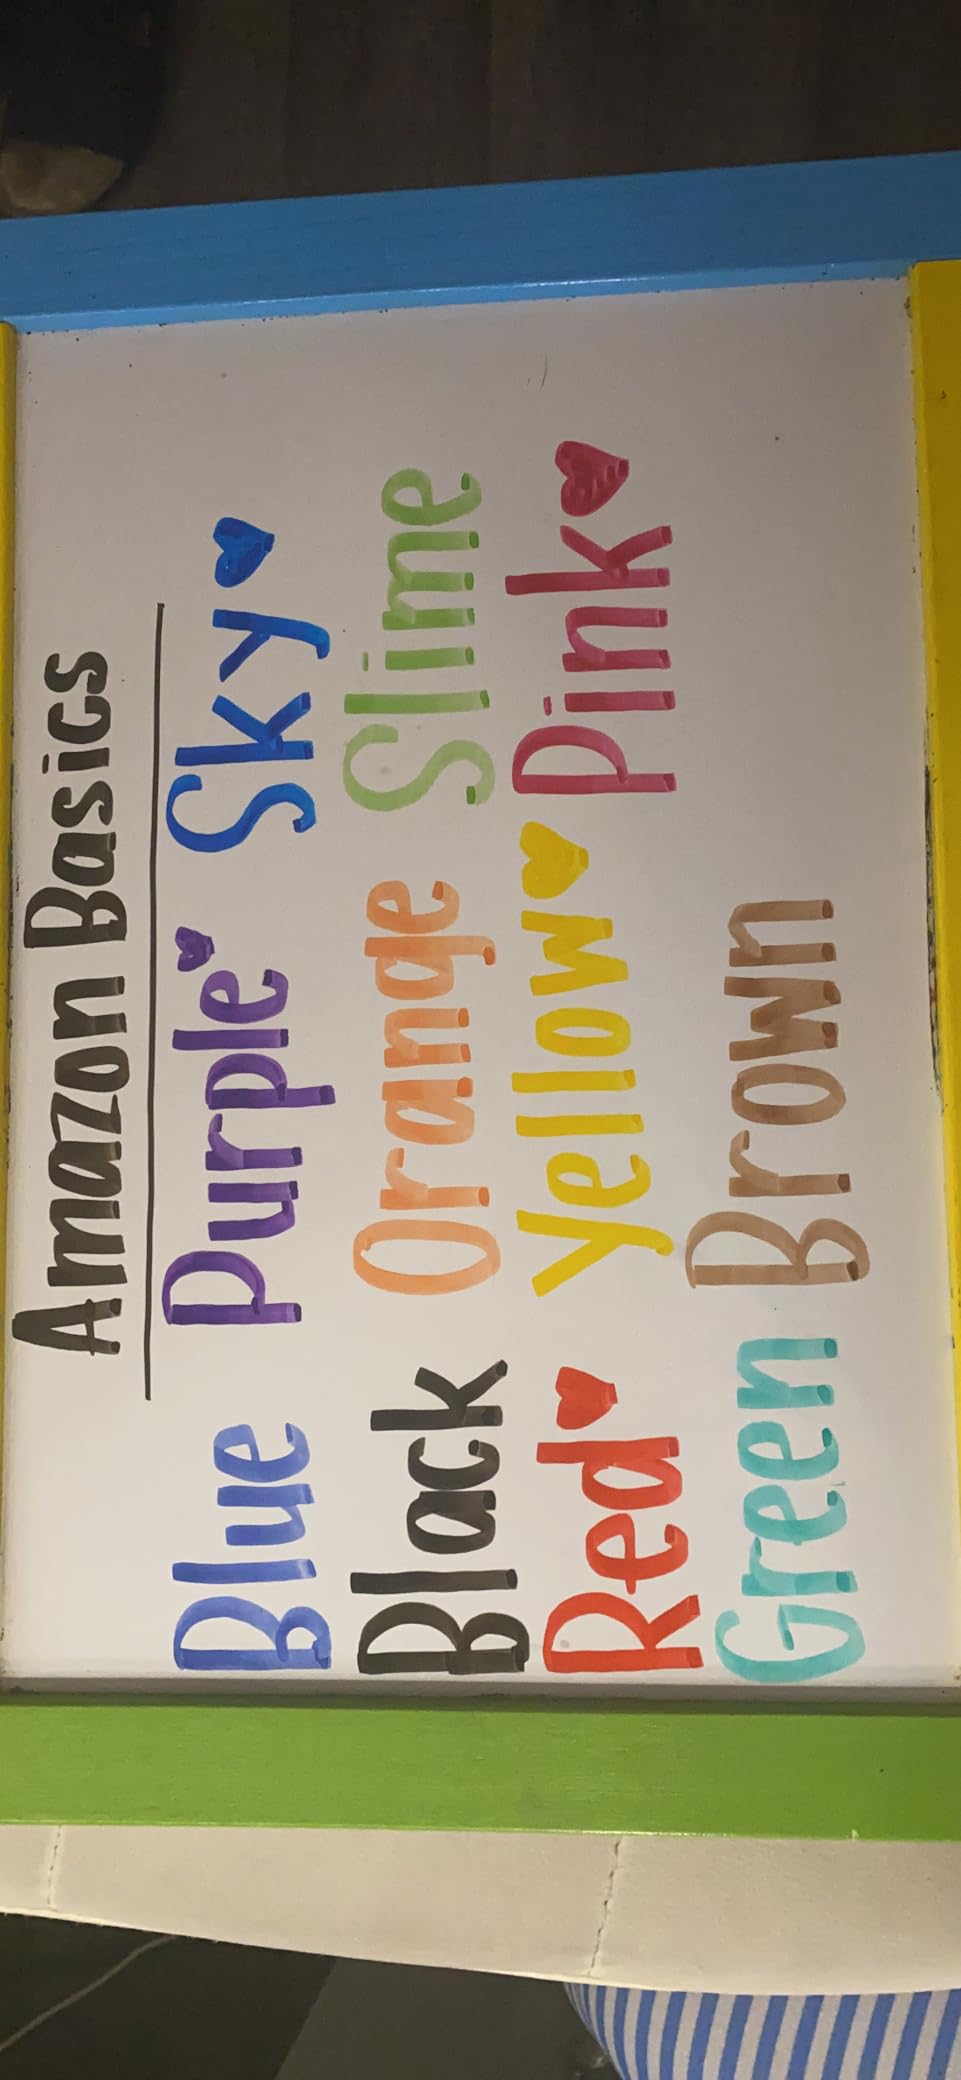 Amazon Basics
Blue Purple Sky
Black Orange Slime
Red Yellow Pink
Green Brown